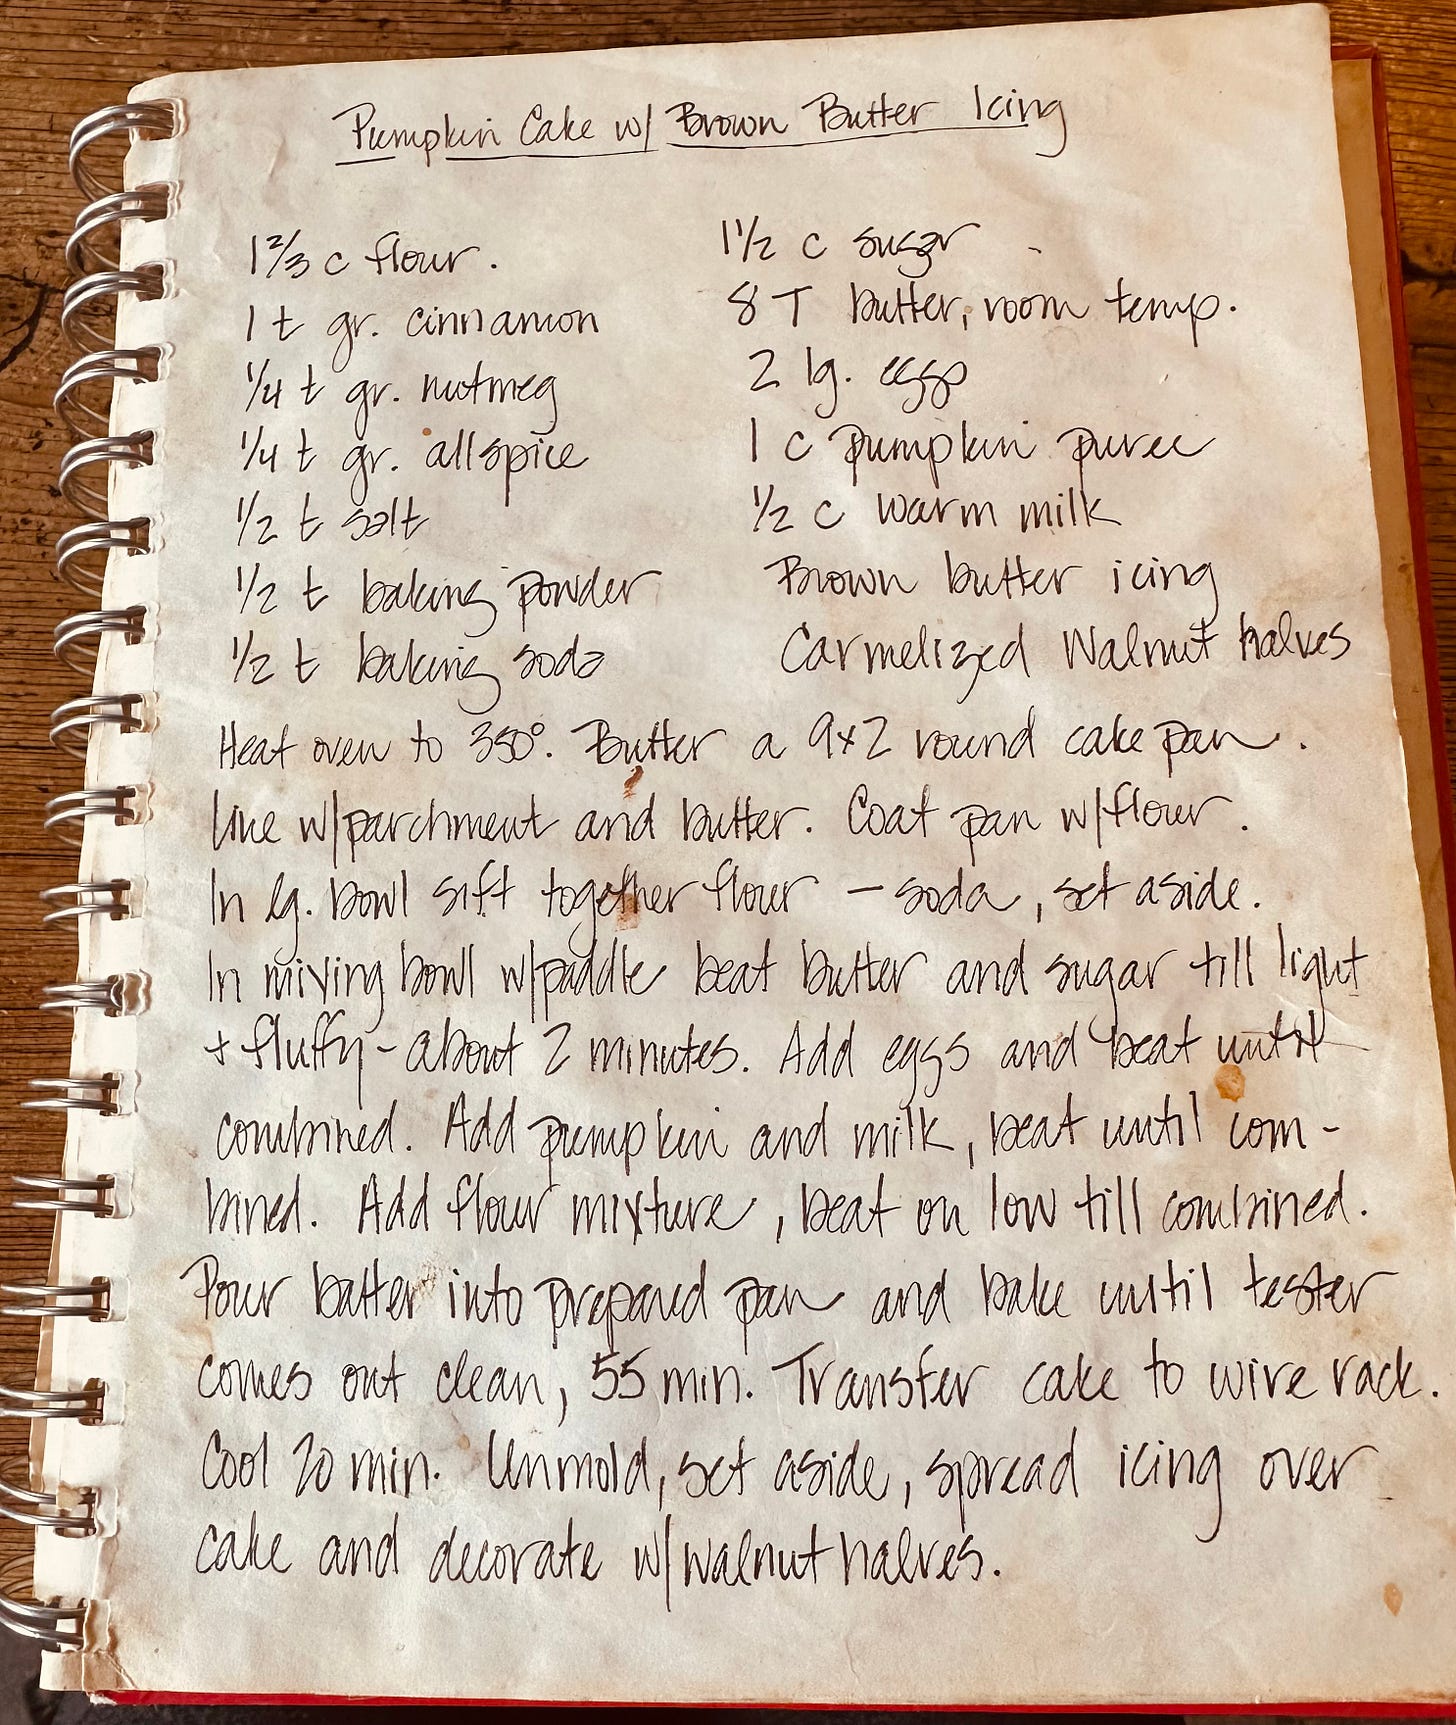 Pumpkin Cake w/ Brown Butter Icing
1 2/3 c flour.
1 t gr. cinnamon
1/4 t gr. nutmeg
1/4 t gr. allspice
1/2 t salt
1/2 t baking powder
1/2 t baking soda
1 1/2 c sugar
8 T butter, room temp.
2 lg. eggs
1 c pumpkin puree
1/2 c warm milk
Brown butter icing
Carmelized Walnut halves
Heat oven to 350°. Butter a 9x2 round cake pan.
Line w/parchment and butter. Coat pan w/flour.
In lg. bowl sift together flour – soda, set aside.
In mixing bowl w/paddle beat butter and sugar till light
+ fluffy - about 2 minutes. Add eggs and beat until
combined. Add pumpkin and milk, beat until com-
bined. Add flour mixture, beat on low till combined.
Pour batter into prepared pan and bake until tester
comes out clean, 55 min. Transfer cake to wire rack.
Cool 20 min. Unmold, set aside, spread icing over
cake and decorate w/walnut halves.